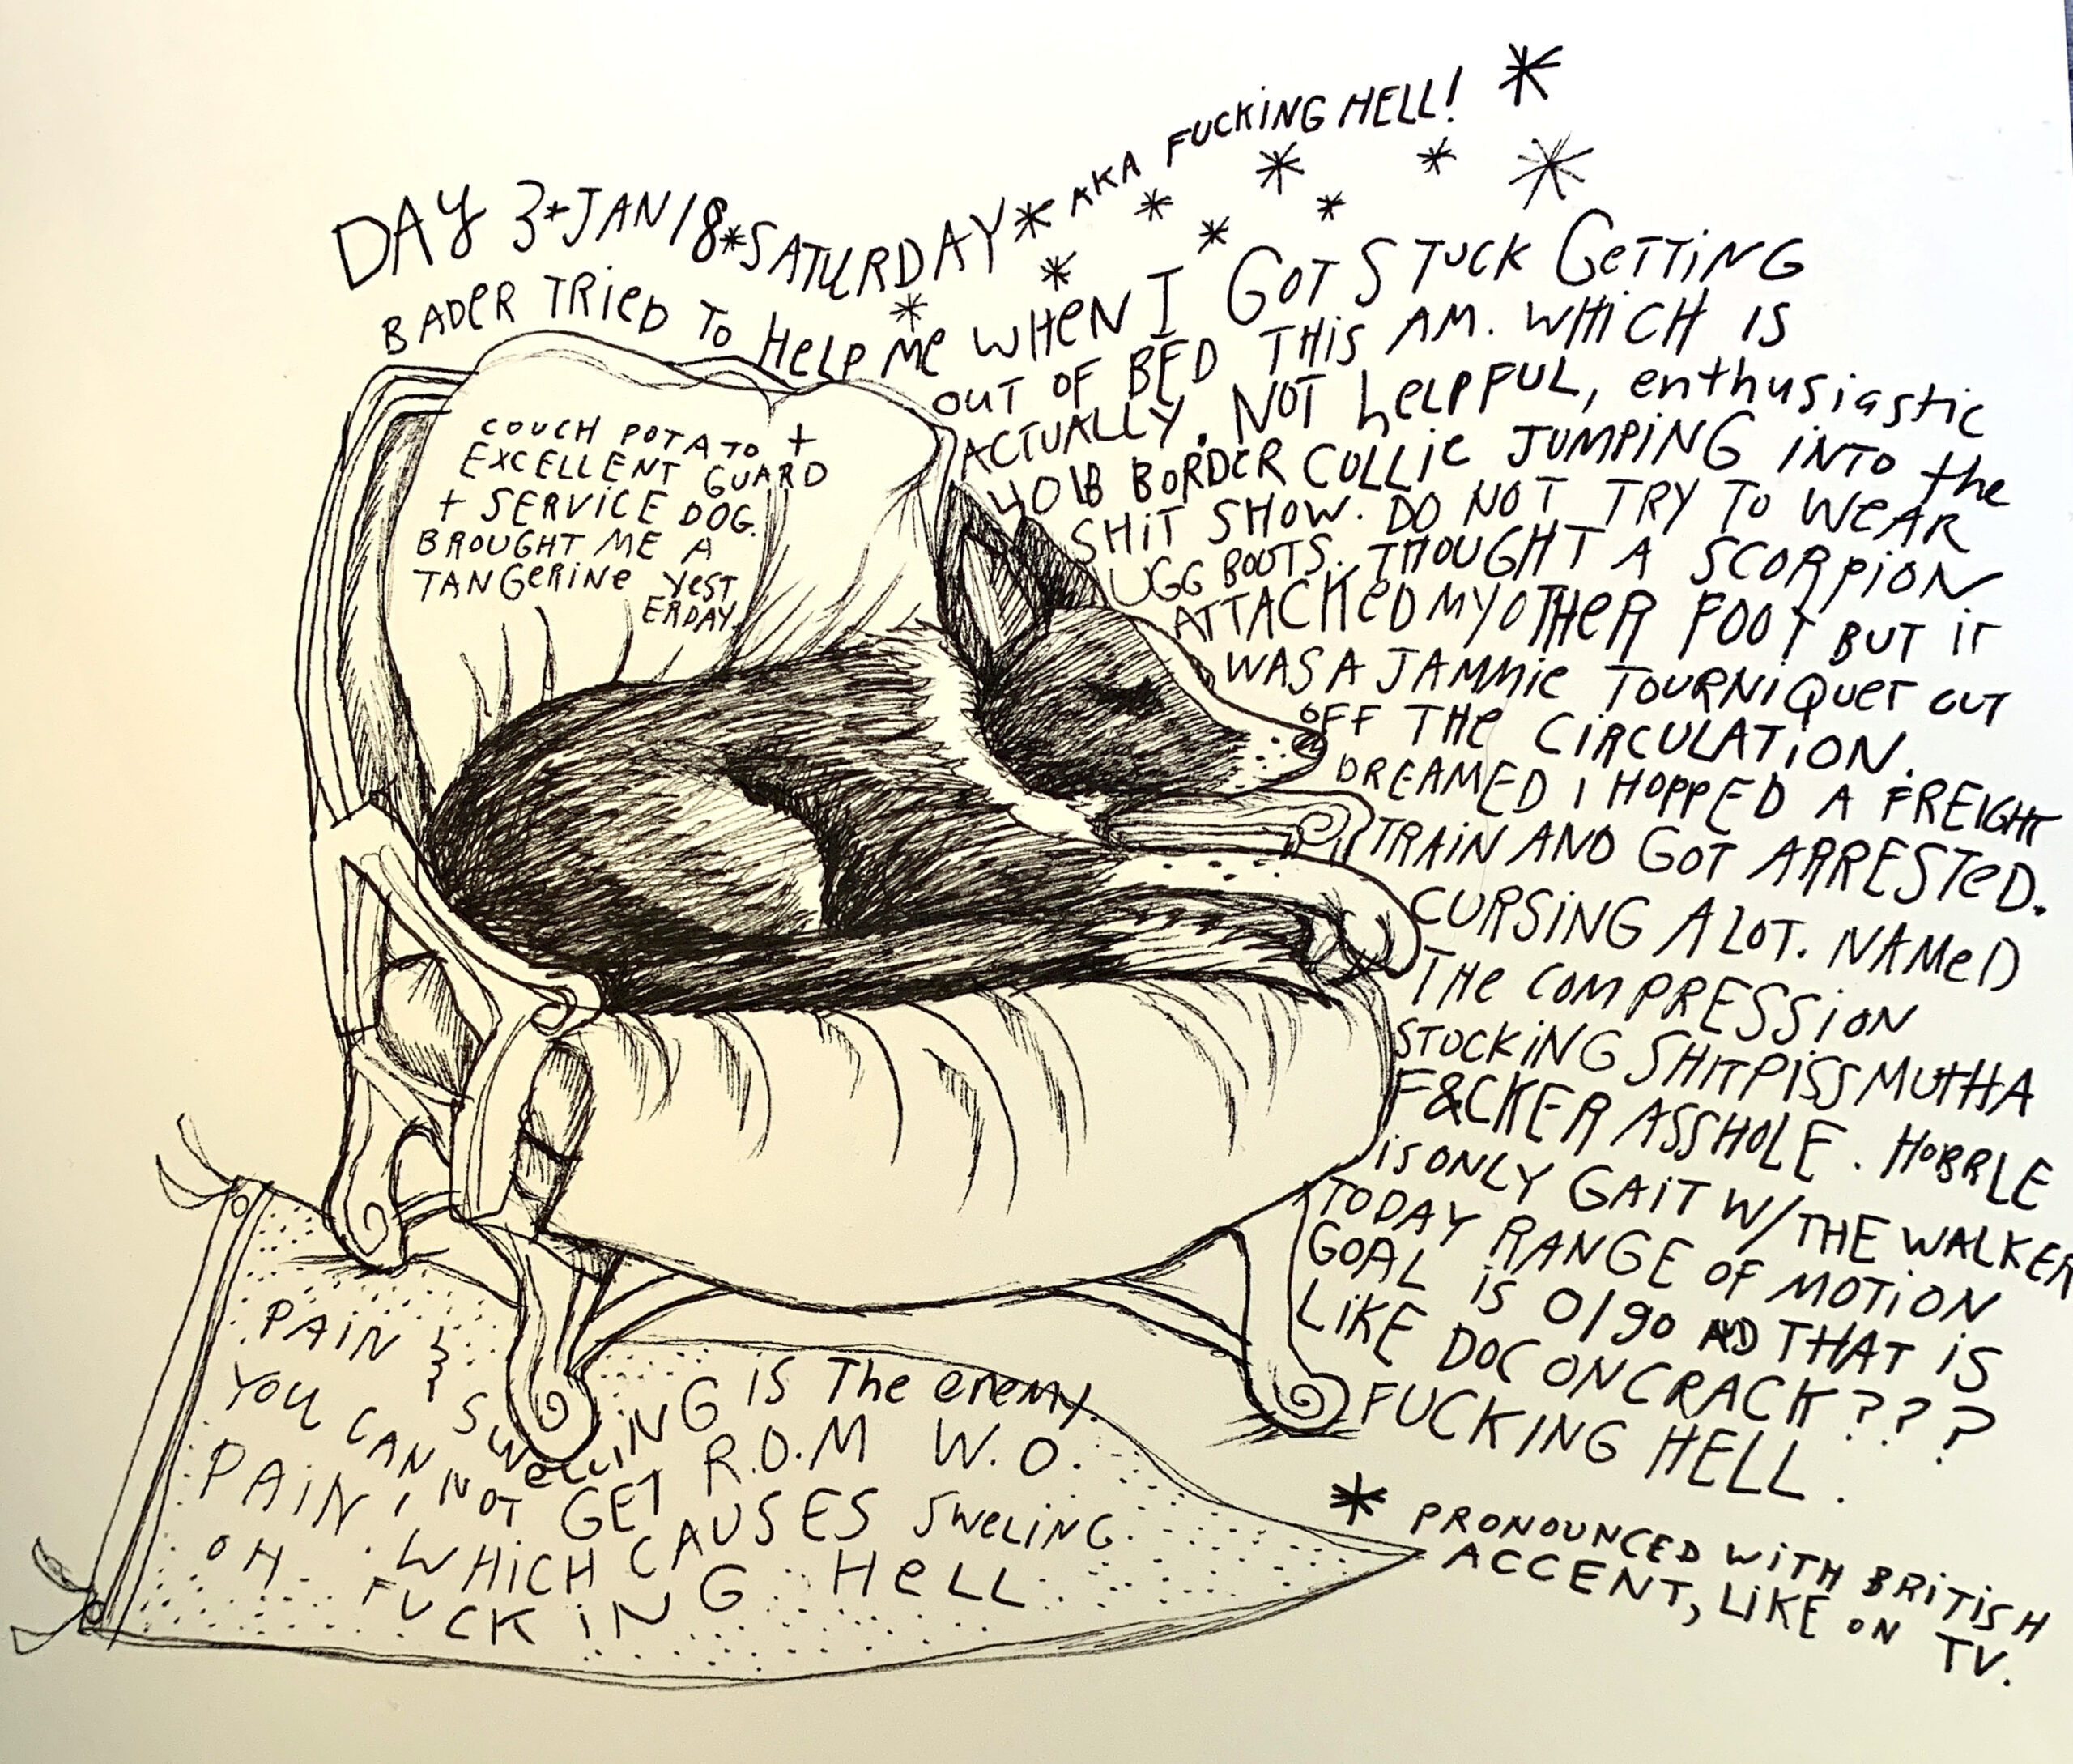 DAY 3*JAN 18*SATURDAY* AKA FUCKING HELL! *
BADER TRIED TO HELP ME WHEN I GOT STUCK GETTING
OUT OF BED THIS AM. WHICH IS
ACTUALLY. NOT helPFUL, enthusiastic
40LB BORDER COLLIE JUMPING INTO the
SHIT SHOW. DO NOT TRY TO WEAR
UGG BOOTS. THOUGHT A SCORPION
ATTACKED MY OTHER FOOT BUT IT
WAS A JAMMIE TOURNIQUET CUT
OFF THE CIRCULATION.
DREAMED I HOPPED A FREIGHT
TRAIN AND GOT ARRESTED.
CURSING A LOT. NAMED
THE COMPRESSION
STOCKING SHITPISSMUTHA
F&CKER ASSHOLE. HOBBLE
IS ONLY GAIT W/THE WALKER
TODAY RANGE OF MOTION
GOAL IS 0/90 AND THAT IS
LIKE DOC ON CRACK???
FUCKING HELL.
* PRONOUNCED WITH BRITISH
ACCENT, LIKE ON TV.
COUCH POTATO +
EXCELLENT GUARD
+ SERVICE DOG.
BROUGHT ME A
TANGERINE YEST
ERDAY.
PAIN & SWELLING IS The enemy.
YOU CAN NOT GET R.O.M W.O.
PAIN, WHICH CAUSES SWELING.
OH FUCKING HELL